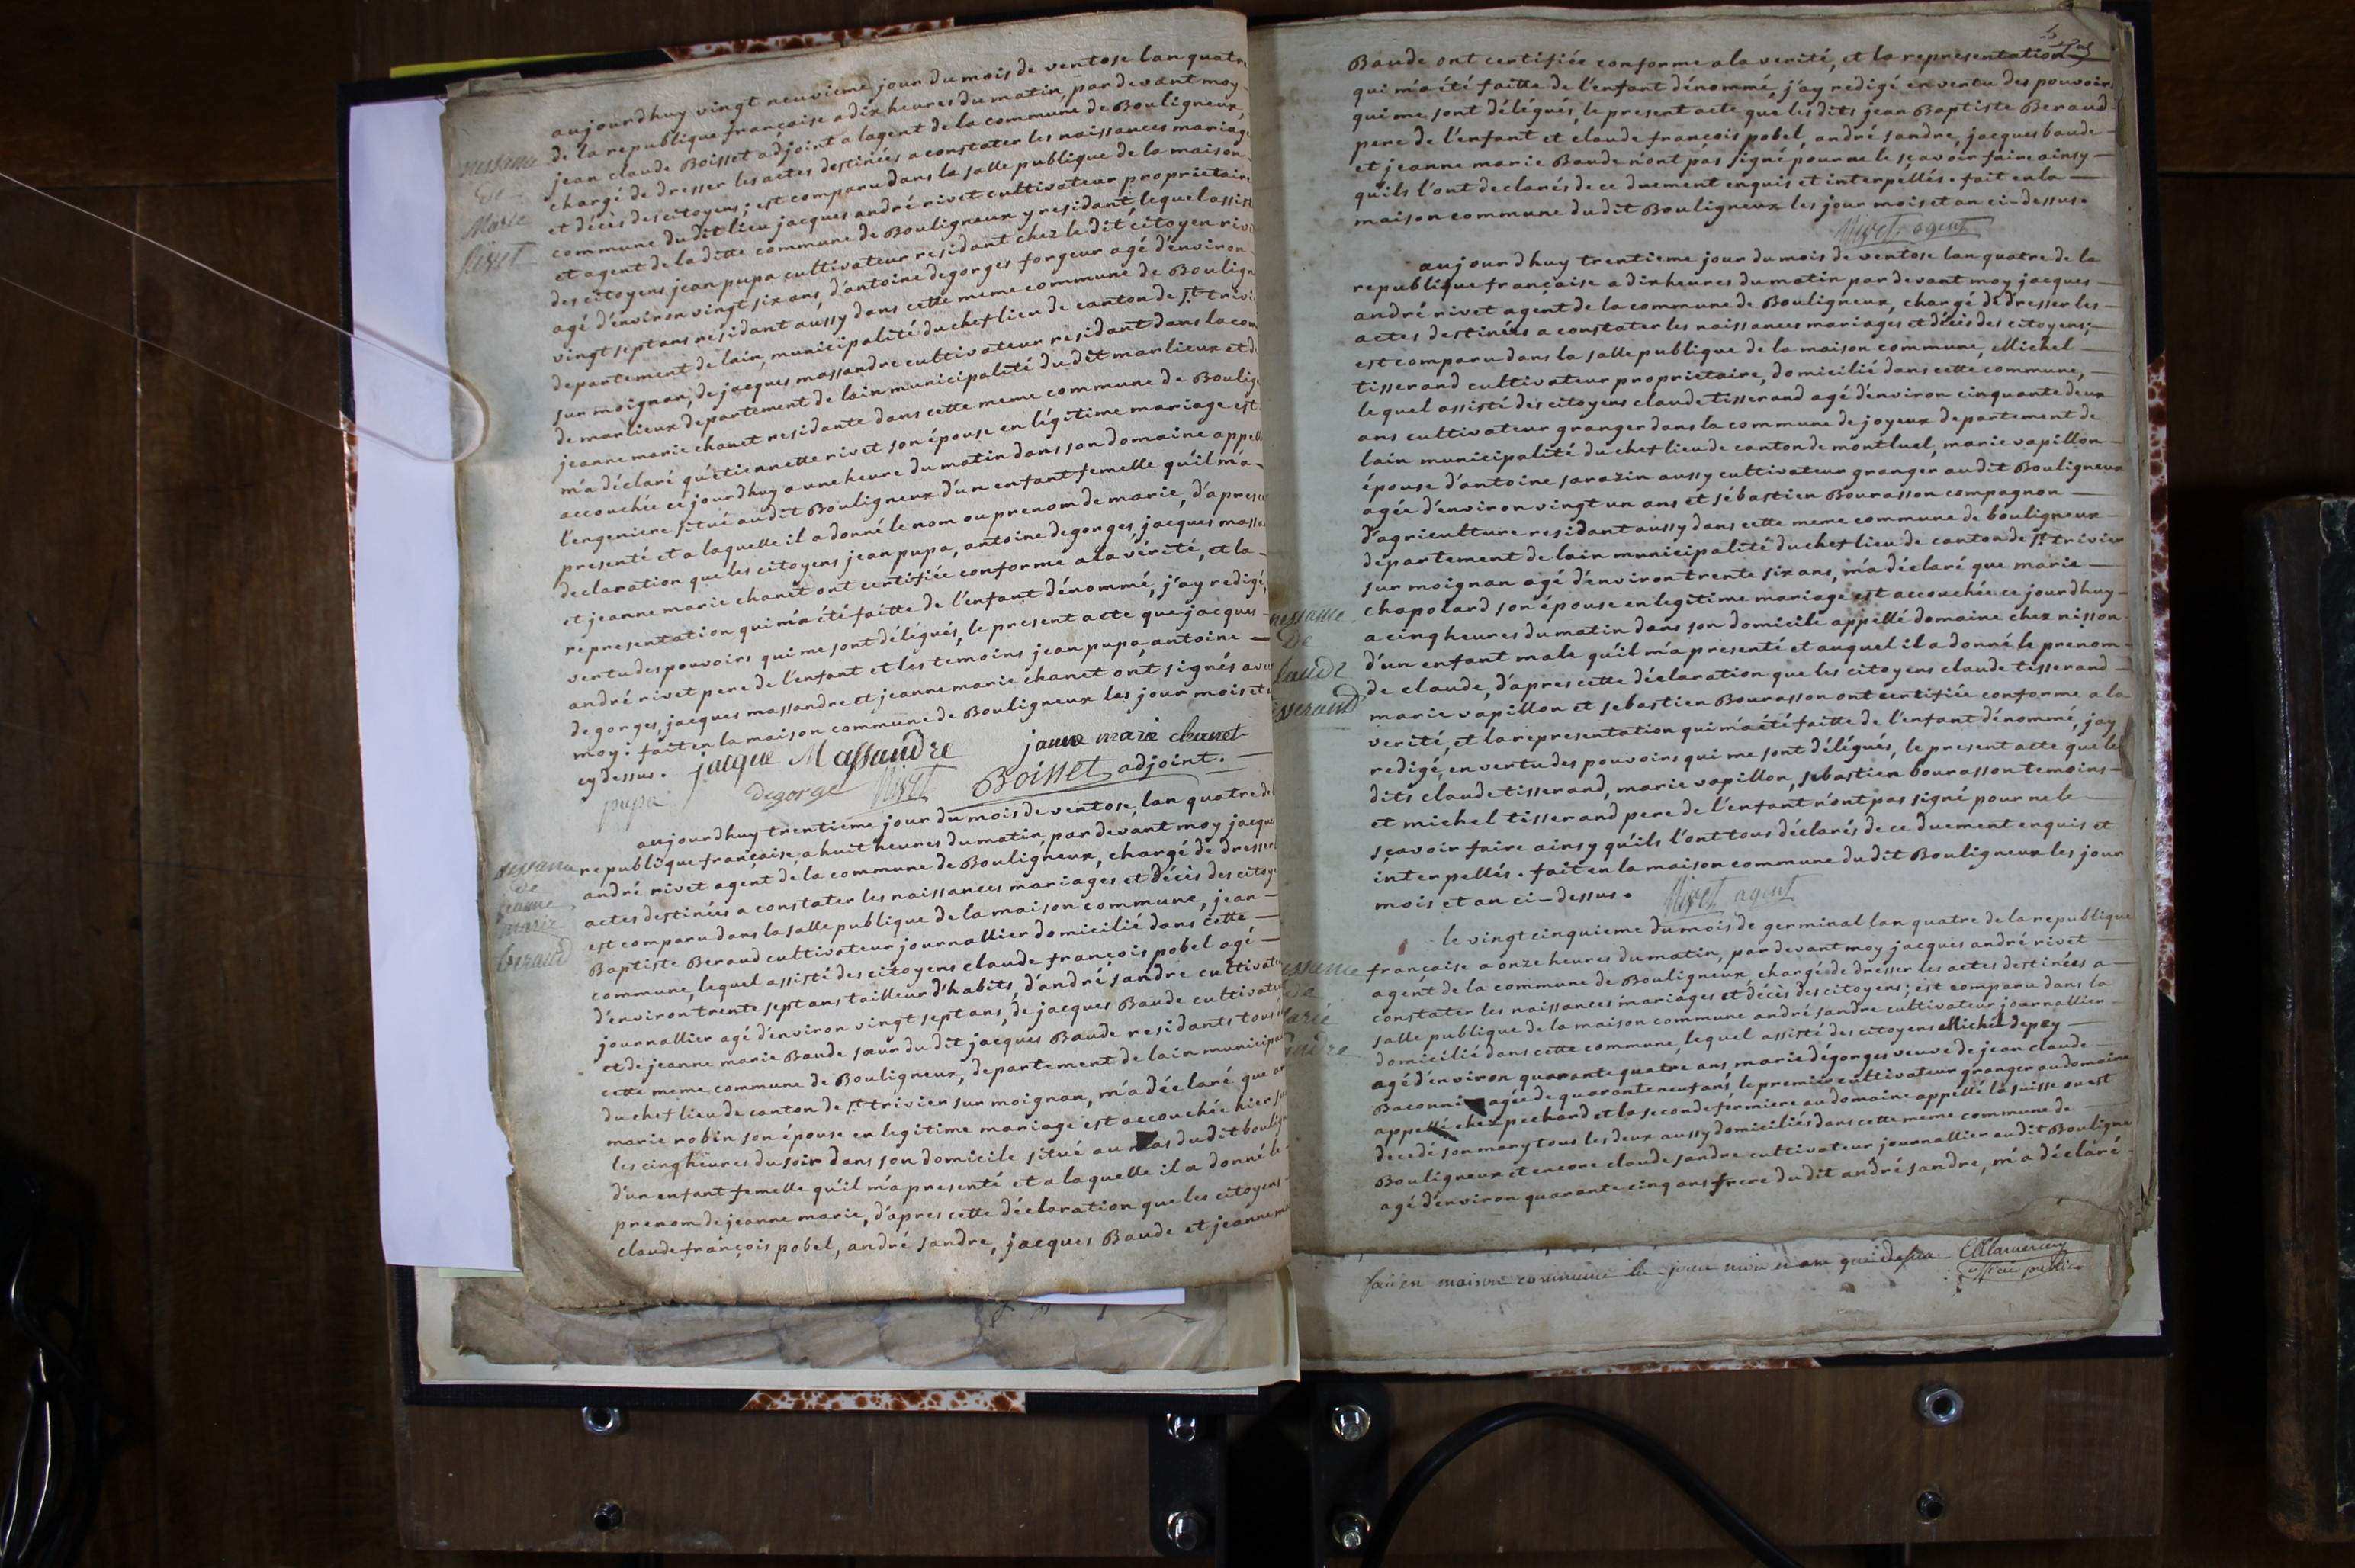 aujourdhuy vingt neuvieme jour du mois de ventose lan quatre
de la republique française a dix heures du matin, par devant moy
jean claude Boisset adjoint a lagent de la commune de Bouligneux,
chargé de dresser les actes destinées a constater les naissances mariage
et décès des citoyens; est comparu dans la salle publique de la maison
commune du dit lieu jacques andré rivet cultivateur proprietaire
et agent de la ditte commune de Bouligneux y residant, lequel assisté
des citoyens jean pupa cultivateur residant chez le dit citoyen rivet
agé d'environ vingt six ans, d'antoine degorges forgeur agé d'environ
vingt sept ans residant aussy dans cette meme commune de Bouligne
departement de lain, municipalité du chef lieu de canton de st trivi
sur moignan, de jacques massandre cultivateur residant dans la com
de marlieux departement de lain municipalité du dit marlieux et de
jeanne marie chanet residante dans cette meme commune de Boulig
m'a déclaré qu'etiennette rivet son épouse en légitime mariage est
accouchée ce jourdhuy a une heure du matin dans son domaine appell
l'engeniere situé au dit Bouligneux d'un enfant femelle qu'il m'a
presenté et a laquelle il a donné le nom ou prenom de marie, d'apres
declaration que les citoyens jean pupa, antoine degorges, jacques massa
et jeanne marie chanet ont certifiée conforme a la vérité, et la
representation qui m'a été faitte de l'enfant dénommé, j'ay redigé,
vertu des pouvoirs qui me sont délégués, le present acte que jacques
andré rivet pere de l'enfant et les temoins jean pupa, antoine
degorges, jacques massandre et jeanne marie chanet ont signés avec
moy: fait en la maison commune de Bouligneux les jour mois et
cy dessus. jacque Massandre janne marie chanet
pupa degorge Rivet Boisset adjoint.
naissance
de
Marie
Rivet
aujourdhuy trentieme jour du mois de ventose, lan quatre de
republique française, a huit heures du matin, par devant moy jacques
andré rivet agent de la commune de Bouligneux, chargé de dresser
actes destinées a constater les naissances mariages et décès des citoy
est comparu dans la salle publique de la maison commune, jean
Baptiste Beraud cultivateur journallier domicilié dans cette
commune, lequel assisté des citoyens claude françois pobel agé
d'environ trente sept ans tailleur d'habits, d'andré sandre cultivateu
journallier agé d'environ vingt sept ans, de jacques Baude cultivateu
et de jeanne marie Baude sœur du dit jacques Baude residants tous
cette meme commune de Bouligneux, departement de lain municipa
du chef lieu de canton de st trivier sur moignan, m'a déclaré que
marie robin son épouse en legitime mariage est accouchée hier
les cinq heures du soir dans son domicile situé au mas du dit boulign
d'un enfant femelle qu'il m'a presenté et a laquelle il a donné le
prenom de jeanne marie, d'apres cette déclaration que les citoyens
claude françois pobel, andré sandre, jacques Baude et jeanne ma
naissance
de
jeanne
marie
beraud
Baude ont certifiée conforme a la verité, et la representation
qui m'a été faitte de l'enfant dénommé, j'ay redigé en vertu des pouvoirs
qui me sont délégués, le present acte que les dits jean Baptiste Beraud
pere de l'enfant et claude françois pobel, andré sandre, jacques baude
et jeanne marie Baude n'ont pas signé pour ne le sçavoir faire ainsy
qu'ils l'ont declarés de ce duement enquis et interpellés. fait en la
maison commune du dit Bouligneux les jour mois et an ci-dessus.
Rivet agent
aujourdhuy trentieme jour du mois de ventose lan quatre de la
republique française a dix heures du matin par devant moy jacques
andré rivet agent de la commune de Bouligneux, chargé de dresser les
actes destinées a constater les naissances mariages et décès des citoyens;
est comparu dans la salle publique de la maison commune, Michel
tisserand cultivateur proprietaire, domicilié dans cette commune,
lequel assisté des citoyens claude tisserand agé d'environ cinquante deux
ans cultivateur granger dans la commune de joyeux departement de
lain municipalité du chef lieu de canton de montluel, marie vapillon
épouse d'antoine sarazin aussy cultivateur granger au dit Bouligneux
agée d'environ vingt un ans et sébastien Bourasson compagnon
d'agriculture residant aussy dans cette meme commune de bouligneux
departement de lain municipalité du chef lieu de canton de st trivier
sur moignan agé d'environ trente six ans, m'a déclaré que marie
chapolard son épouse en legitime mariage est accouchée ce jourdhuy
a cinq heures du matin dans son domicile appellé domaine chez nisson
d'un enfant male qu'il m'a presenté et auquel il a donné le prenom
de claude, d'apres cette déclaration que les citoyens claude tisserand
marie vapillon et sebastien Bourasson ont certifiée conforme a la
verité, et la representation qui m'a été faitte de l'enfant dénommé, jay
redigé, en vertu des pouvoirs qui me sont délégués, le present acte que les
dits claude tisserand, marie vapillon, sebastien bourasson temoins
et michel tisserand pere de l'enfant n'ont pas signé pour ne le
sçavoir faire ainsy qu'ils l'ont tous déclarés de ce duement enquis et
interpellés. fait en la maison commune du dit Bouligneux les jour
mois et an ci-dessus. Rivet agent
nessance
De
laude
sseraud
le vingt cinquieme du mois de germinal lan quatre de la republique
française a onze heures du matin, par devant moy jacques andré rivet
agent de la commune de Bouligneux chargé de dresser les actes destinées a
constater les naissances mariages et décès des citoyens; est comparu dans la
salle publique de la maison commune andré sandre cultivateur journallier
domicilié dans cette commune, lequel assisté des citoyens Michel depey
agé d'environ quarante quatre ans, marie dégorges veuve de jean claude
Baconni agée de quarante neuf ans, le premier cultivateur granger au domaine
appellé chez pechard et la seconde fermiere au domaine appellé la suisse ou est
decedé son mary tous les deux aussy domiciliés dans cette meme commune de
Bouligneux et encore claude sandre cultivateur journallier au dit Bouligne
agé d'environ quarante cinq ans frere du dit andré sandre, m'a déclaré
essance
de
arie
andre
fait en maison commune le jour mois et an que dessus
officié public